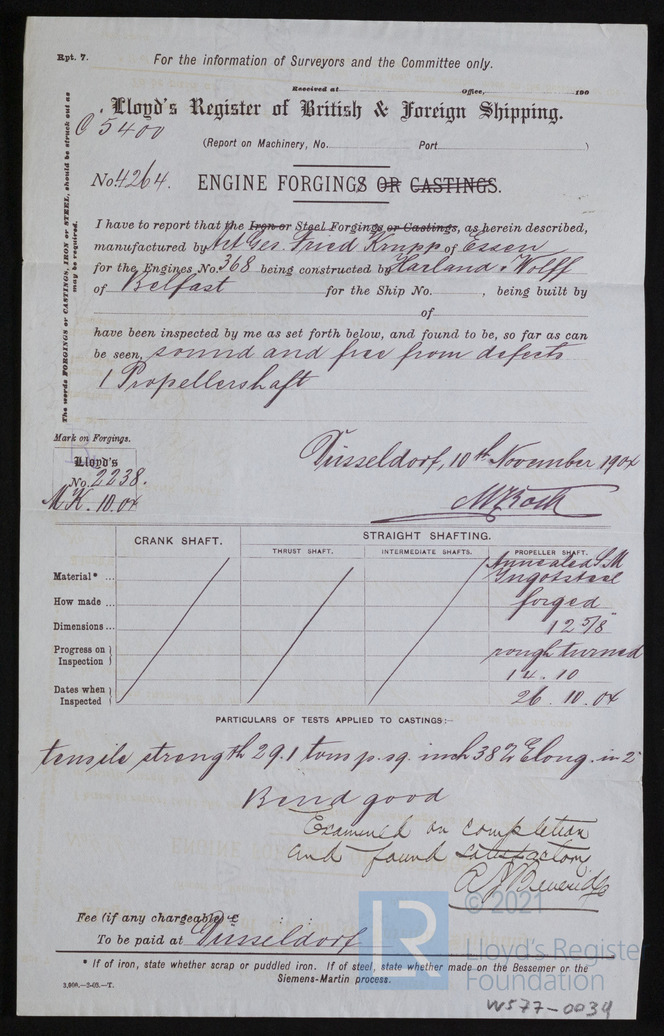 Rpt. 7.
For the information of Surveyors and the Committee only.
Received at Office, 190
Lloyd's Register of British & Foreign Shipping.
C 5400
(Report on Machinery, No. Port )
The words FORGINGS or CASTINGS, IRON or STEEL, should be struck out as may be required.
No. 4264. ENGINE FORGINGS OR CASTINGS.
I have to report that the Iron or Steel Forgings or Castings, as herein described,
manufactured by Act. Ges. Fried Krupp of Essen
for the Engines No. 368 being constructed by Harland & Wolff
of Belfast for the Ship No. , being built by
of
have been inspected by me as set forth below, and found to be, so far as can
be seen, sound and free from defects
1 Propellershaft
Mark on Forgings.
Lloyd's
No. 2238.
MK. 10.04
Düsseldorf, 10th November 1904
CRANK SHAFT. STRAIGHT SHAFTING.
THRUST SHAFT. INTERMEDIATE SHAFTS. PROPELLER SHAFT.
Material* ... Annealed S.M Ingotsteel
How made ... forged
Dimensions ... 12 5/8"
Progress on Inspection rough turned
Dates when Inspected 14.10 26.10.04
PARTICULARS OF TESTS APPLIED TO CASTINGS:—
tensile strength 29.1 tons p. sq. inch 38% Elong. in 2"
Bend good
Examined on completion
and found satisfactory
Fee (if any chargeable) £ : :
To be paid at Düsseldorf
* If of iron, state whether scrap or puddled iron. If of steel, state whether made on the Bessemer or the
Siemens-Martin process.
3,000.—3-03.—T.
LR
© 2021
Lloyd's Register
Foundation
W577-0034